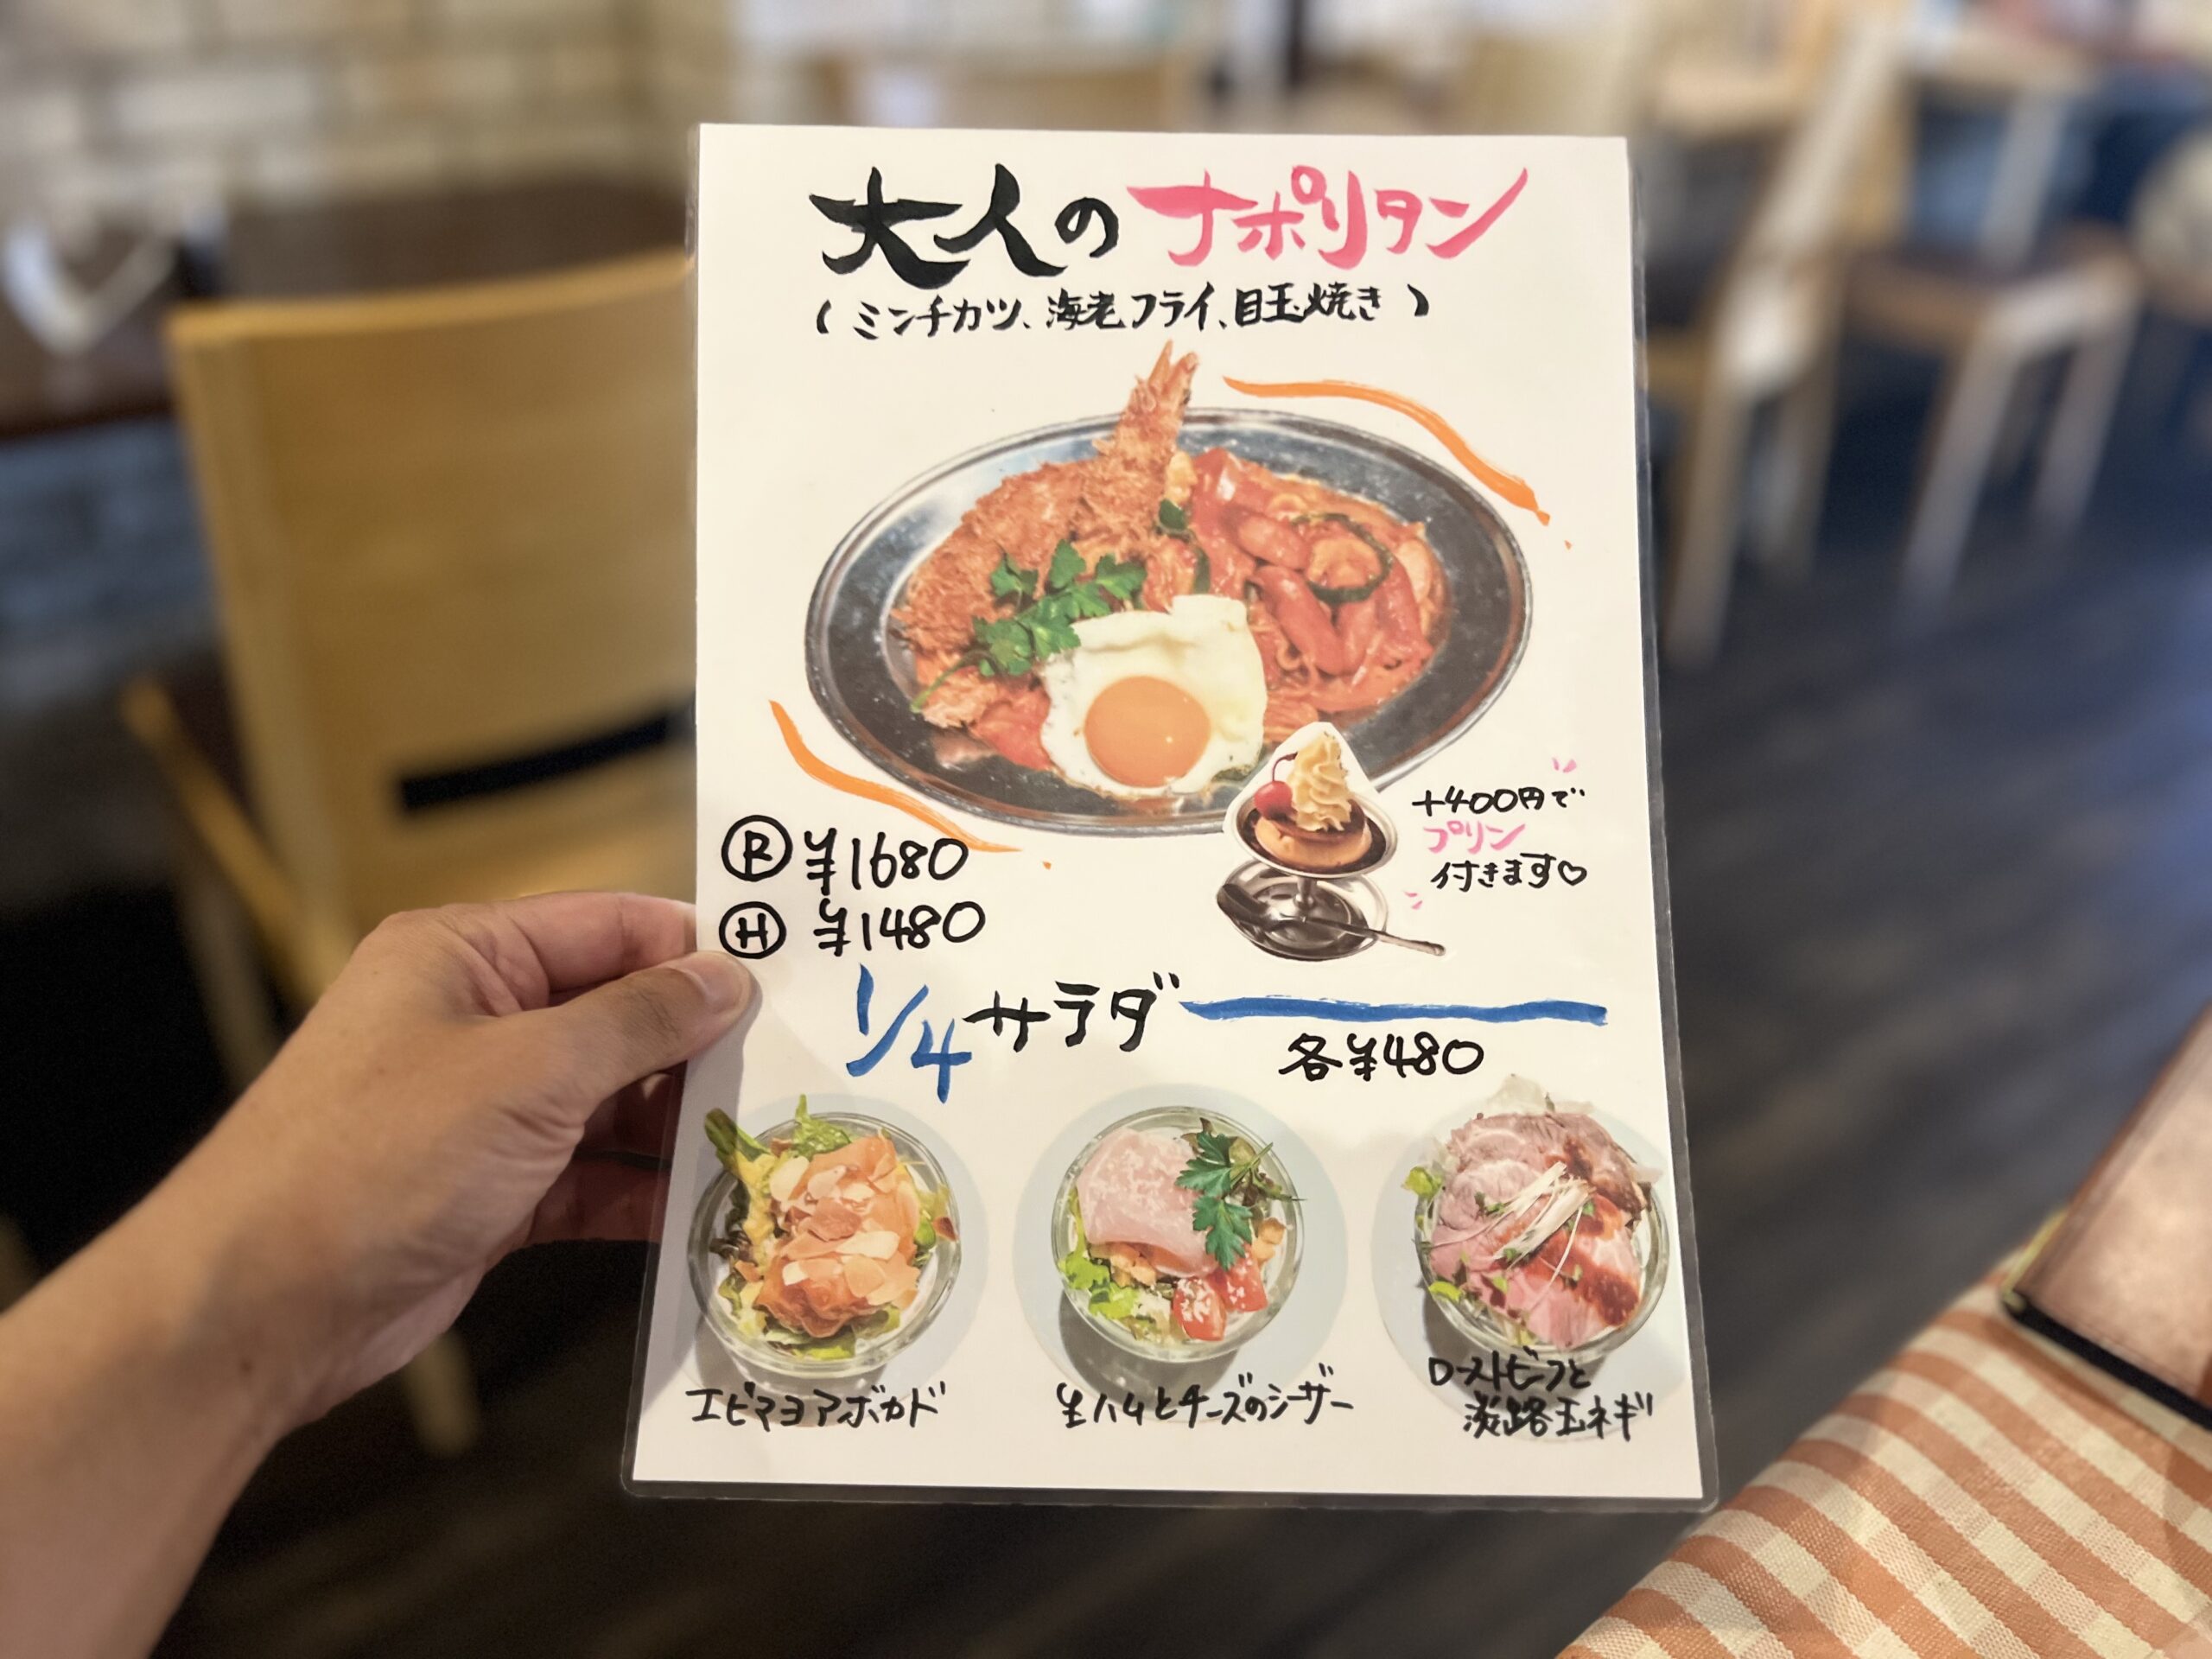 大人のナポリタン
(ミンチカツ、海老フライ、目玉焼き)
Ⓡ ¥1680
Ⓗ ¥1480
+400円で
プリン
付きます♡
1/4サラダ
各¥480
エビマヨアボカド
生ハムとチーズのシーザー
ローストビーフと
淡路玉ネギ